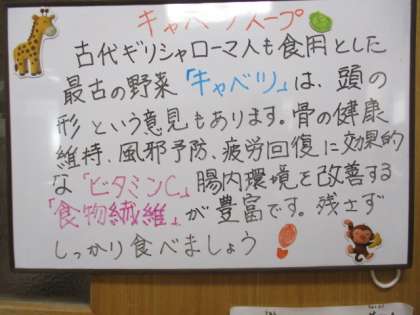 キャベツスープ
古代ギリシャローマ人も食用とした
最古の野菜「キャベツ」は、頭の
形という意見もあります。骨の健康
維持、風邪予防、疲労回復に効果的
な「ビタミンC」腸内環境を改善する
「食物繊維」が豊富です。残さず
しっかり食べましょう